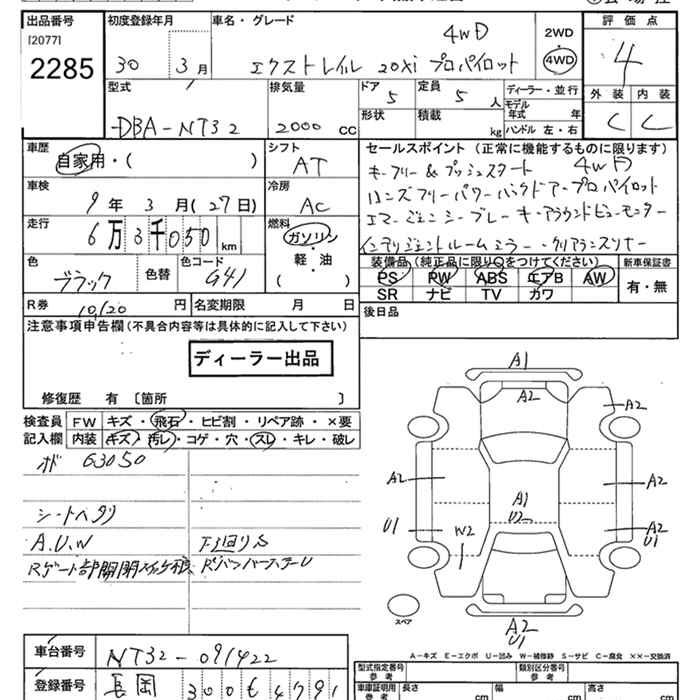 出品番号 初度登録年月 車名・グレード 4WD 2WD 評価点
[2077] 2285 30年 3月 エクストレイル 20Xi プロパイロット 4WD 4
型式 排気量 ドア 5 定員 5人 ディーラー・並行 外装 内装
DBA-NT32 2000 CC 形状 積載 kg モデル年式 年 C C
ハンドル 左・右
車歴 シフト セールスポイント (正常に機能するものに限ります)
自家用・( ) AT キーフリー&プッシュスタート 4WD
車検 冷房 ハンズフリーパワーバックドアープロパイロット
9年 3月 (27日) AC エマージェンシーブレーキ・アラウンドビューモニター
走行 燃料 インテリジェントルームミラー・クリアランスソナー
6万3千050km ガソリン
軽・油
( )
装備品 (純正品に限り○をつけてください) 新車保証書
PS PW ABS エアB AW 有・無
SR ナビ TV カワ
色 ブラック 色替 色コード G41
R券 10,120円 名変期限 月 日 後日品
注意事項申告欄 (不具合内容等は具体的に記入して下さい)
ディーラー出品
修復歴 有 [箇所 ]
検査員記入欄 FW キズ・飛石・ヒビ割・リペア跡・×要
内装 キズ・汚レ・コゲ・穴・スレ・キレ・破レ
メド 63050
シートヘタリ
A.U.W 下廻りS
Rゲート部開閉
A1
A2
A2
A2 A2
A1
U2
U1 W2 A2
U1
A2
U1
スペア
A-キズ E-エクボ U-凹み W-補修跡 S-サビ C-腐食 ××-交換済
車台番号 NT32-091422
型式指定番号 参考 類別区分番号 参考
登録番号 長岡 300 4791
車庫証明用 参考 長さ cm 幅 cm 高さ cm